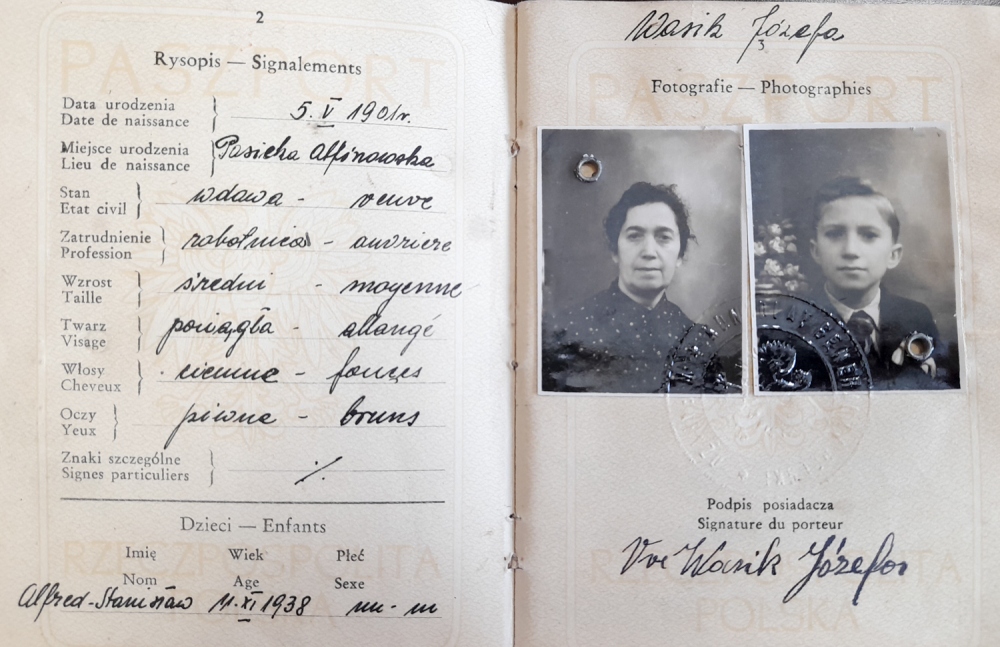 2
Rysopis — Signalements
Data urodzenia
Date de naissance
5. V 1901r.
Miejsce urodzenia
Lieu de naissance
Pasieka Alfinowska
Stan
Etat civil
wdowa - veuve
Zatrudnienie
Profession
robotnica - ouvrière
Wzrost
Taille
średni - moyenne
Twarz
Visage
pociągła - allongé
Włosy
Cheveux
ciemne - fonçes
Oczy
Yeux
piwne - bruns
Znaki szczególne
Signes particuliers
./.
Dzieci — Enfants
Imię Wiek Płeć
Nom Age Sexe
Alfred-Stanisław 11.XI 1938 m - m
RZECZPOSPOLITA
POLSKA
PASZPORT
Wasik Józefa
3
Fotografie — Photographies
PASZPORT
Podpis posiadacza
Signature du porteur
Vve Wasik Józefa
RZECZPOSPOLITA
POLSKA